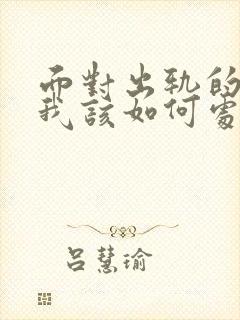 面對出軌的
我該如何處
呂慧瑜